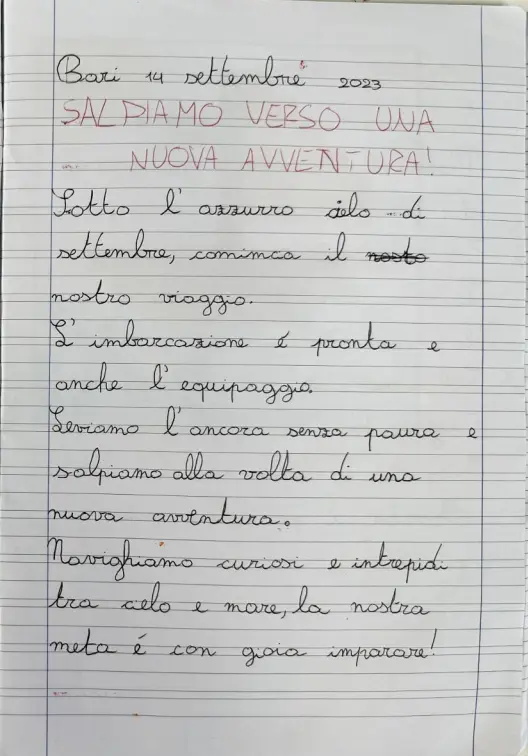 Bari 14 settembre 2023
SALPIAMO VERSO UNA
NUOVA AVVENTURA!
Sotto l'azzurro cielo di
settembre, comincia il nosto
nostro viaggio.
L'imbarcazione é pronta e
anche l'equipaggio.
Leviamo l'ancora senza paura e
salpiamo alla volta di una
nuova avventura.
Navighiamo curiosi e intrepidi
tra cielo e mare, la nostra
meta é con gioia imparare!